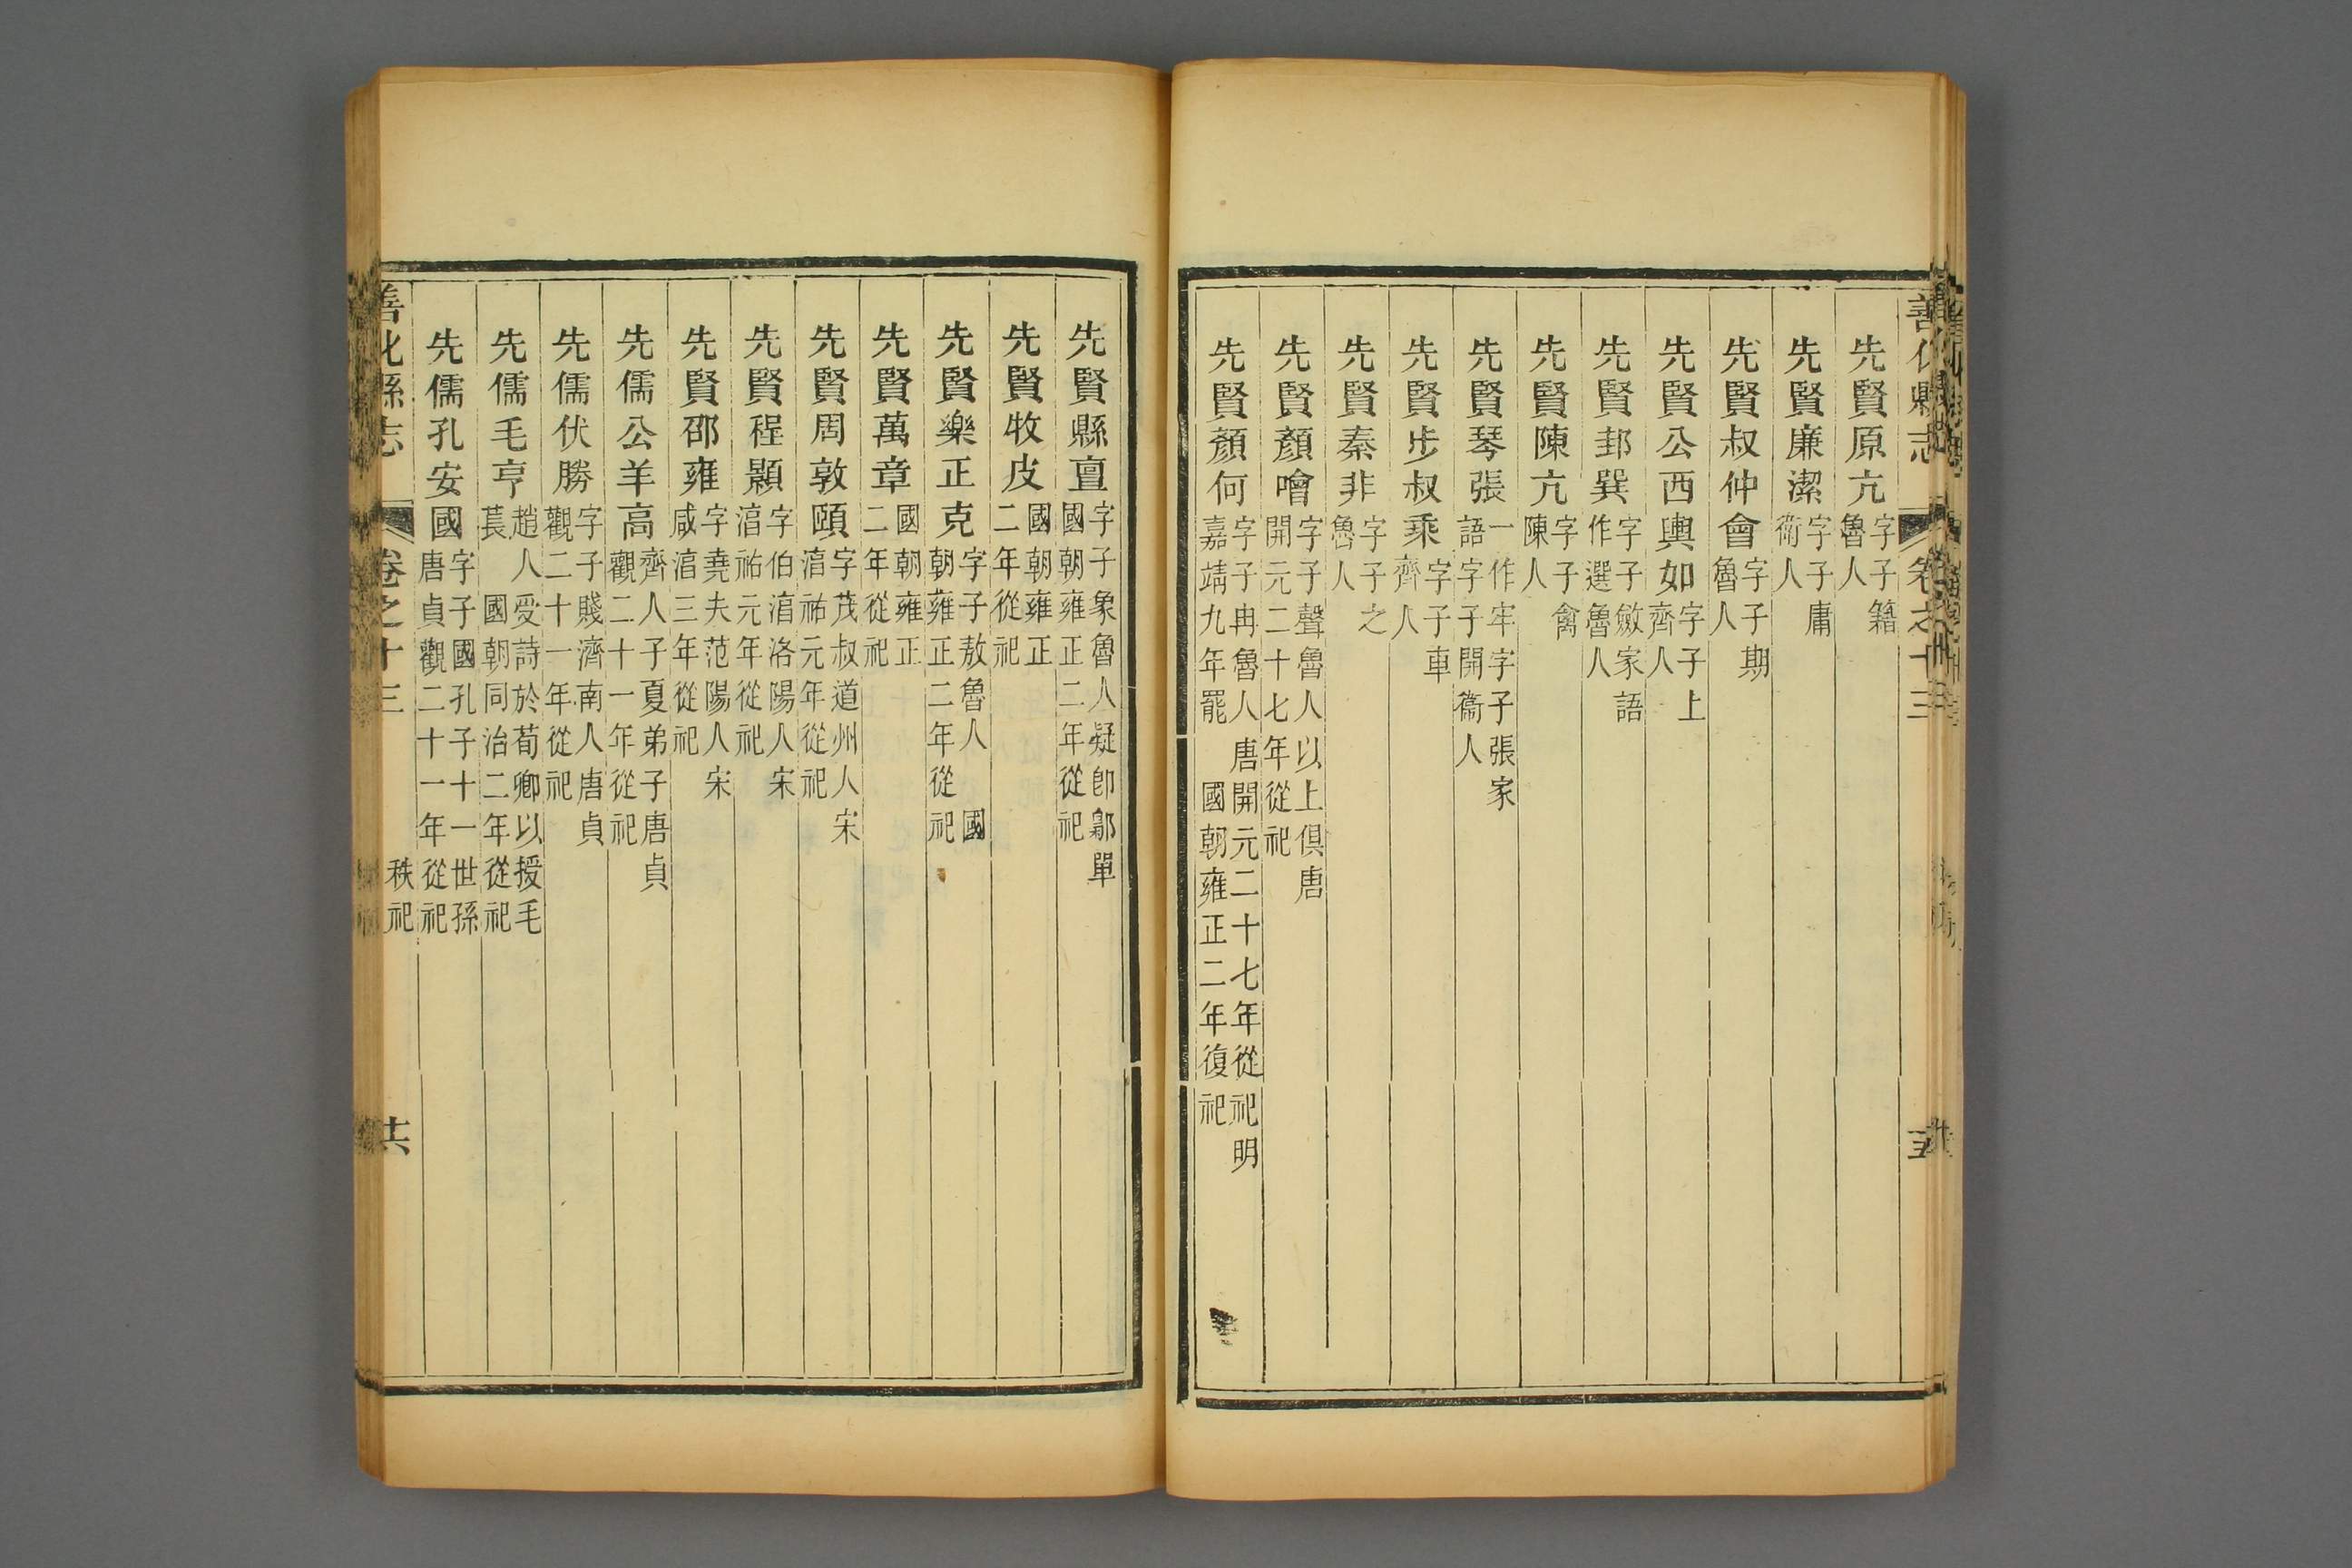 善化縣志 卷之十三
先賢原亢字子籍魯人
先賢廉潔字子庸衛人
先賢叔仲會字子期魯人
先賢公西輿如字子上齊人
先賢邽巽字子斂家語作選魯人
先賢陳亢字子禽陳人
先賢琴張一作牢字子張家語字子開衞人
先賢步叔乘字子車齊人
先賢秦非字子之魯人
先賢顏噲字子聲魯人以上俱唐開元二十七年從祀
先賢顏何字子冉魯人唐開元二十七年從祀明嘉靖九年罷 國朝雍正二年復祀
先賢縣亶字子象魯人疑卽鄡單國朝雍正二年從祀
先賢牧皮國朝雍正二年從祀
先賢樂正克字子敖魯人 國朝雍正二年從祀
先賢萬章國朝雍正二年從祀
先賢周敦頤字茂叔道州人宋湻祐元年從祀
先賢程顥字伯湻洛陽人宋湻祐元年從祀
先賢邵雍字堯夫范陽人宋咸湻三年從祀
先儒公羊高齊人子夏弟子唐貞觀二十一年從祀
先儒伏勝字子賤濟南人唐貞觀二十一年從祀
先儒毛亨趙人受詩於荀卿以授毛萇 國朝同治二年從祀
先儒孔安國字子國孔子十一世孫唐貞觀二十一年從祀
善化縣志 卷之十三 秩祀 共